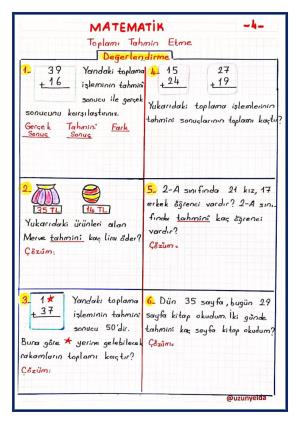 MATEMATİK -4-
Toplamı Tahmin Etme
Değerlendirme
1- 39
+ 16
Yandaki toplama
işleminin tahmini
sonucu ile gerçek
sonucunu karşılaştırınız.
Gerçek Tahmini Fark
Sonuç Sonuç
4. 15 27
+ 24 + 19
Yukarıdaki toplama işlemlerinin
tahmini sonuçlarının toplamı kaçtır?
2.
35 TL 14 TL
Yukarıdaki ürünleri alan
Merve tahmini kaç lira öder?
Çözüm:
5. 2-A sınıfında 21 kız, 17
erkek öğrenci vardır? 2-A sı-
fında tahmini kaç öğrenci
vardır?
Çözüm:
3. 1★
+ 37
Yandaki toplama
işleminin tahmini
sonucu 50'dir.
Buna göre ★ yerine gelebilecek
rakamların toplamı kaçtır?
Çözüm:
6. Dün 35 sayfa, bugün 29
sayfa kitap okudum. İki günde
tahmini kaç sayfa kitap okudum?
Çözüm:
@uzunyelda